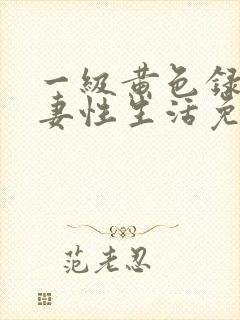 一级黄色录
妻性生活免
范老忍